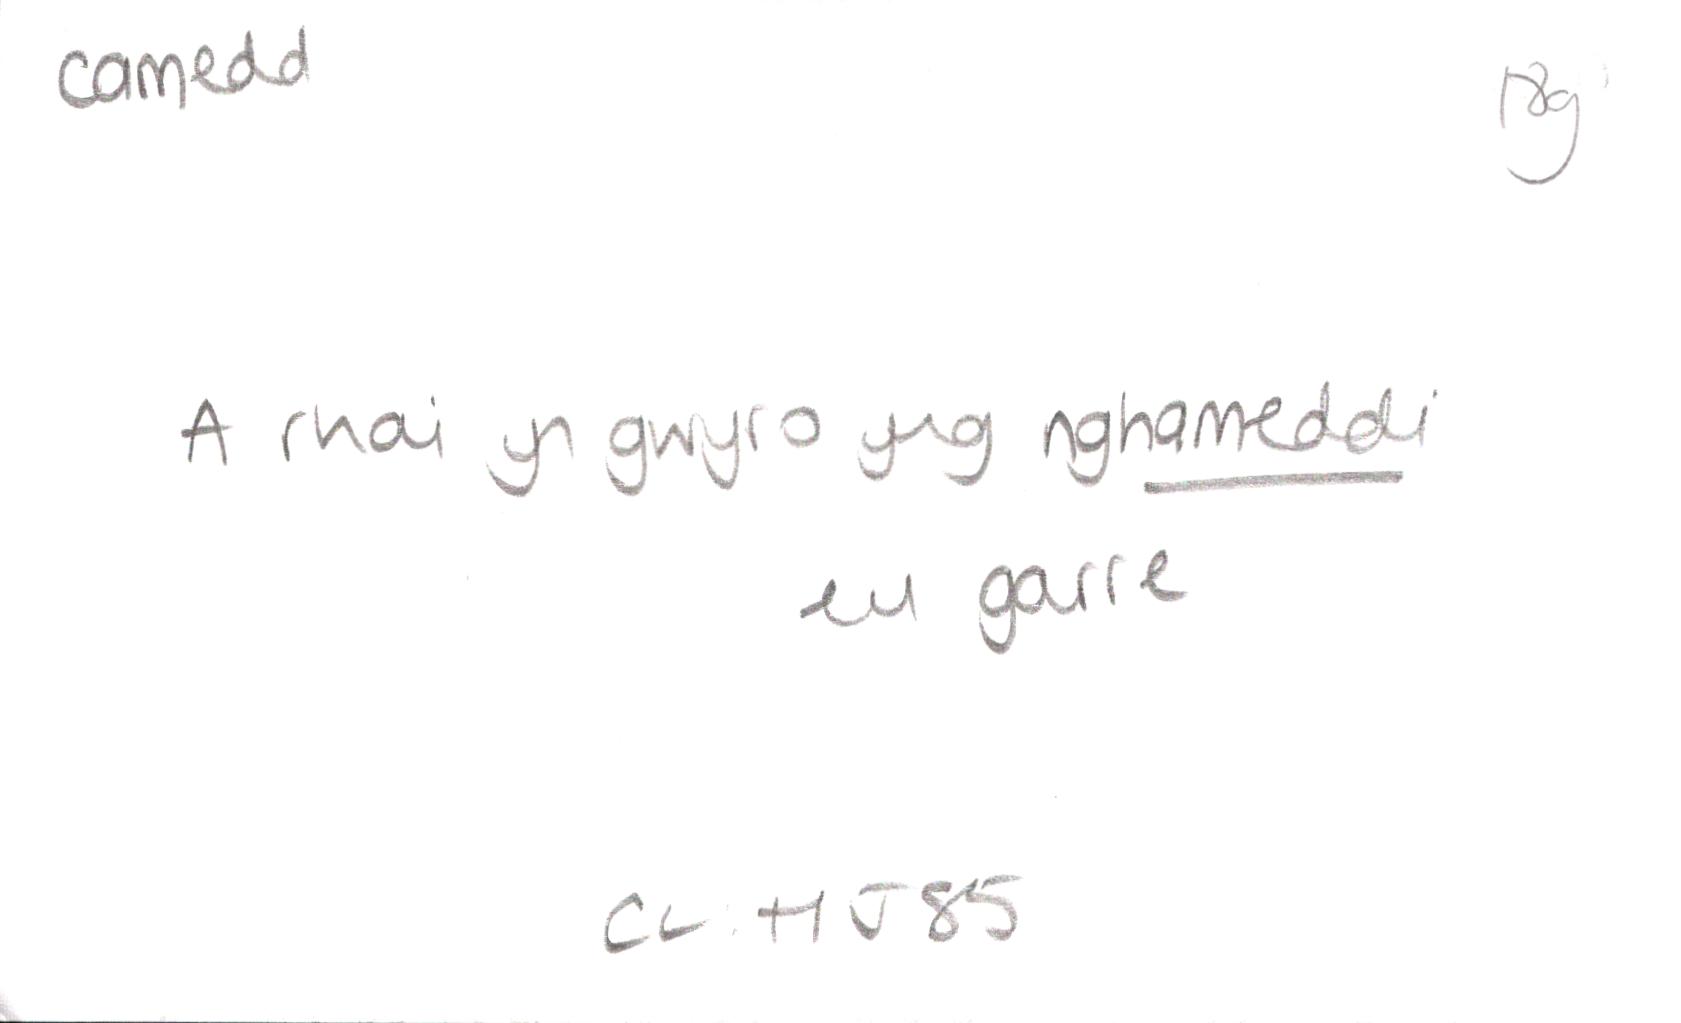 camedd
18g
A rhai yn gwyro yng nghameddi
eu garre
CL: HJ 85